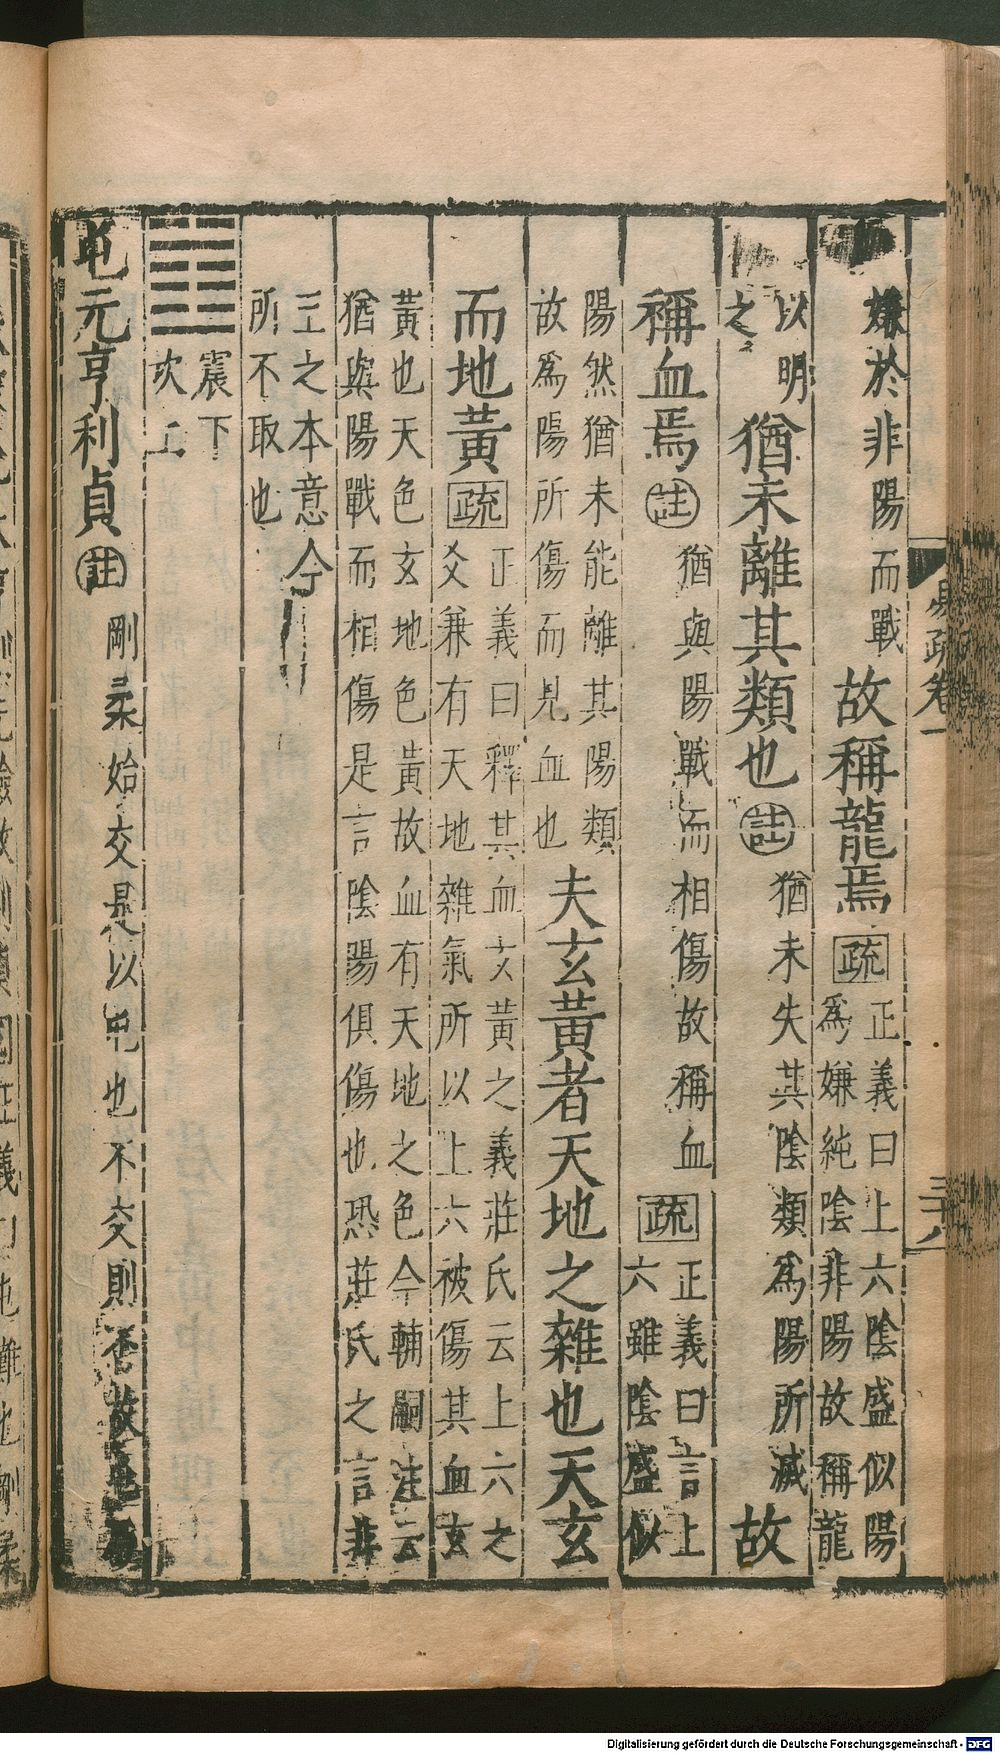 嫌於非陽而戰故稱龍焉疏正義曰上六陰盛似陽
爲嫌純陰非陽故稱龍
以明
之猶未離其類也註猶未失其陰類爲陽所滅故
稱血焉註猶與陽戰而相傷故稱血疏正義曰言上
六雖陰盛似
陽然猶未能離其陽類
故爲陽所傷而見血也夫玄黃者天地之雜也天玄
而地黃疏正義曰釋其血玄黃之義莊氏云上六之
爻兼有天地雜氣所以上六被傷其血玄
黃也天色玄地色黃故血有天地之色今輔嗣注云
猶與陽戰而相傷是言陰陽俱傷也恐莊氏之言非
王之本意今
所不取也
震下
坎上
屯元亨利貞註剛柔始交是以屯也不交則否故屯
易疏卷一
三十八
Digitalisierung gefördert durch die Deutsche Forschungsgemeinschaft - DFG